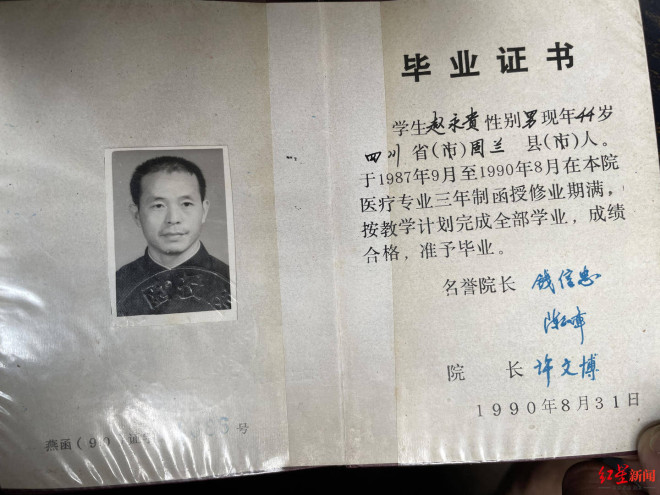 毕业证书
学生赵永贵性别男现年44岁
四川省(市)周兰县(市)人。
于1987年9月至1990年8月在本院
医疗专业三年制函授修业期满，
按教学计划完成全部学业，成绩
合格，准予毕业。
名誉院长 钱信忠
院长 许文博
1990年8月31日
燕函(90)证 号
红星新闻